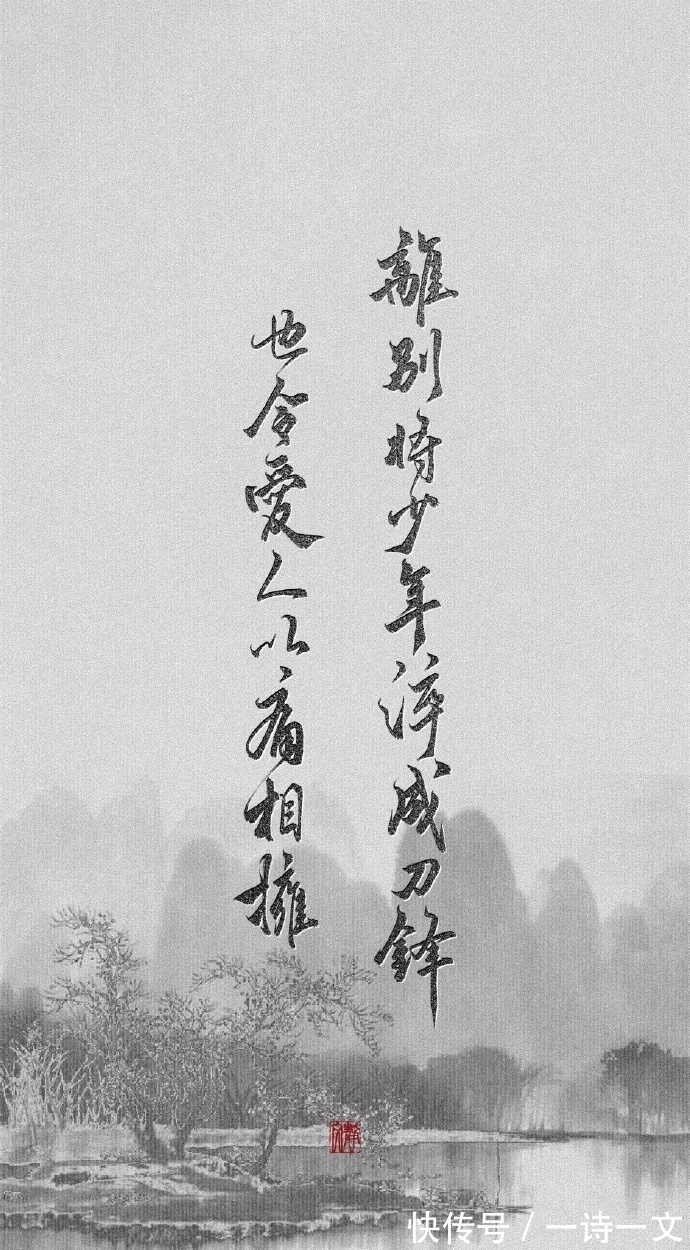 離別將少年淬成刀鋒
也令愛人以痛相擁
快传号 / 一诗一文